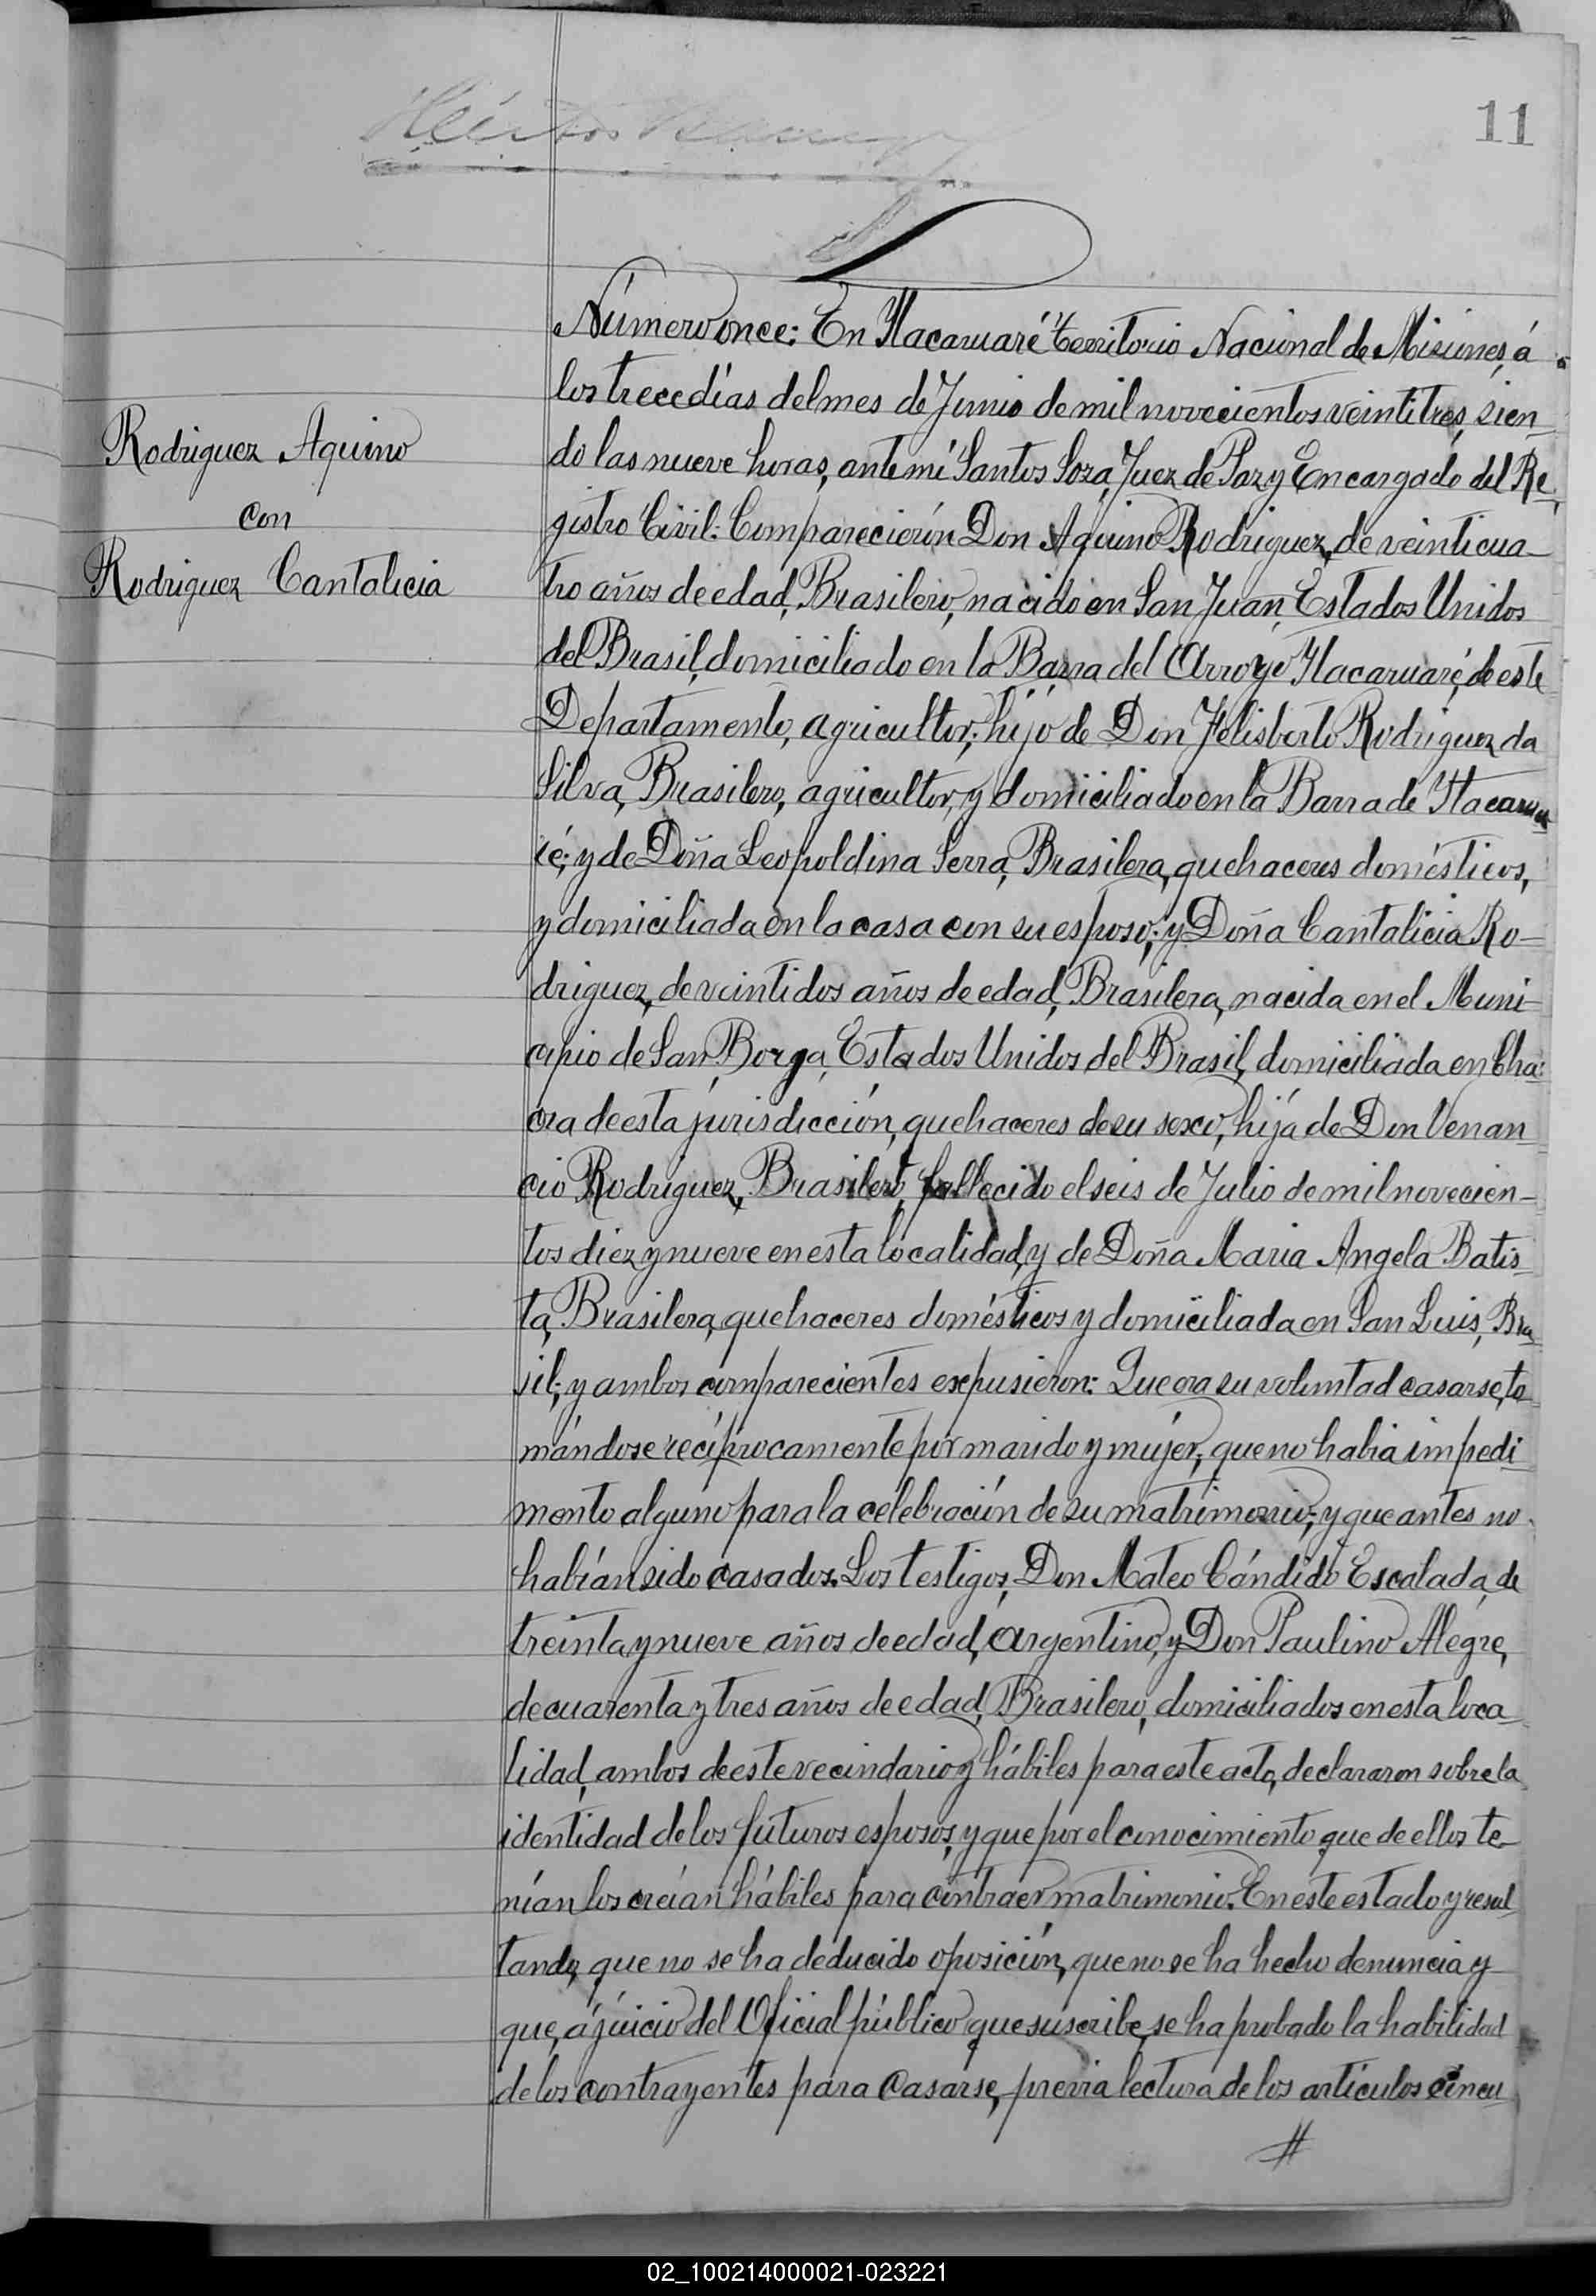 11
Número once: En Itacaruaré Territorio Nacional de Misiones, á
los trece días del mes de Junio de mil novecientos veintitres, sien-
do las nueve horas, ante mí Santos Soza, Juez de Paz y Encargado del Re-
gistro Civil: Comparecierón Don Aquino Rodriguez, de veinticua-
tro años de edad, Brasilero, nacido en San Juan, Estados Unidos
del Brasil, domiciliado en la Barra del Arroyo Itacaruaré, de este
Departamento, agricultor; hijo de Don Felisberto Rodriguez da
Silva, Brasilero, agricultor, y domiciliado en la Barra de Itacarua
ré; y de Doña Leopoldina Serra, Brasilera, quehaceres domésticos,
y domiciliada en la casa con su esposo; y Doña Cantalicia Ro-
driguez, de veintidos años de edad, Brasilera, nacida en el Muni-
cipio de San Borga, Estados Unidos del Brasil, domiciliada en Cha-
cra de esta jurisdicción, quehaceres de su sexo, hija de Don Venan
cio Rodriguez, Brasilero, fallecido el seis de Julio de mil novecien-
tos diez y nueve en esta localidad, y de Doña Maria Angela Batis-
ta, Brasilera, quehaceres domésticos y domiciliada en San Luis, Bra-
sil; y ambos comparecientes expusieron: Que era su voluntad casarse, to-
mándose recíprocamente por marido y mujer; que no habia impedi-
mento alguno para la celebración de su matrimonio; y que antes no
habían sido casados. Los testigos, Don Mateo Cándido Escalada, de
treinta y nueve años de edad, Argentino, y Don Paulino Alegre,
de cuarenta y tres años de edad, Brasilero, domiciliados en esta loca-
lidad, ambos de este vecindario y hábiles para este acto, declararon sobre la
identidad de los futuros esposos, y que por el conocimiento que de ellos te-
nían los creían hábiles para contraer matrimonio. En este estado y resul-
tando, que no se ha deducido oposición, que no se ha hecho denuncia y
que, á juicio del Oficial público que suscribe, se ha probado la habilidad
de los contrayentes para casarse, previa lectura de los artículos cincu
#
Rodriguez Aquino
con
Rodriguez Cantalicia
02_100214000021-023221